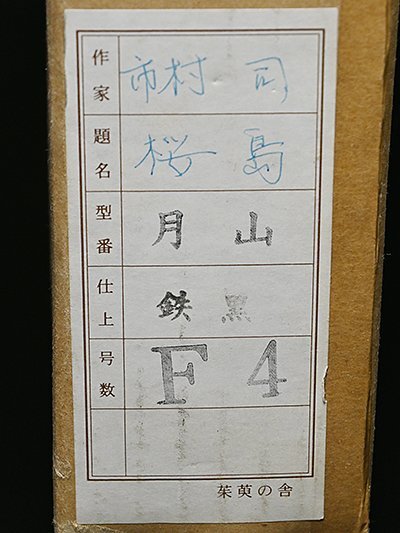 作家 市村 司
題名 桜島
型番 月山
仕上 鉄黒
号数 F4
茱萸の舎